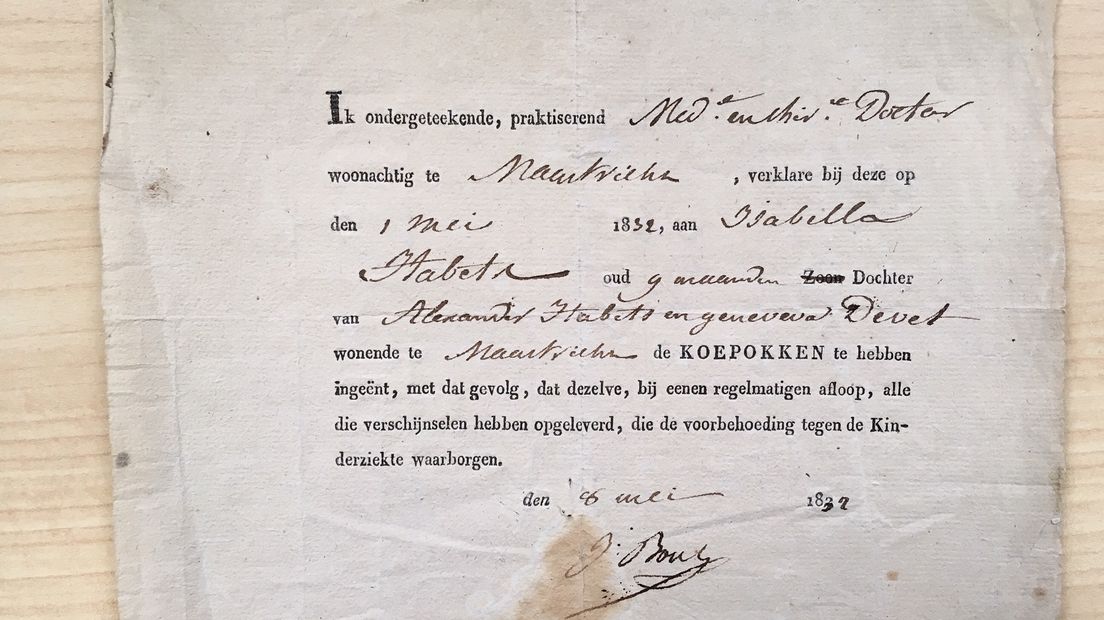 Ik ondergeteekende, praktiserend Med.e en Chir.ie Doctor
woonachtig te Maastricht , verklare bij deze op
den 1 mei 1832, aan Isabella
Habets oud 9 maanden Zoon Dochter
van Alexander Habets en geneveva Devet
wonende te Maastricht de KOEPOKKEN te hebben
ingeënt, met dat gevolg, dat dezelve, bij eenen regelmatigen afloop, alle
die verschijnselen hebben opgeleverd, die de voorbehoeding tegen de Kin-
derziekte waarborgen.
den 8 mei 1832